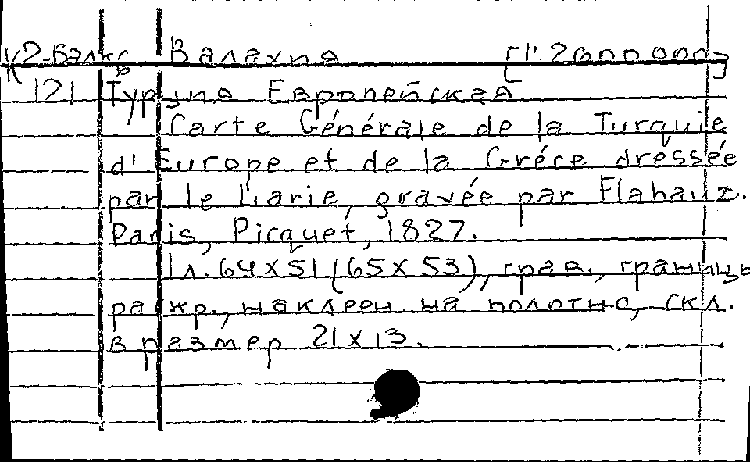 К2-Балк. Валахия [1:2600000]
121 Турция Европейская
Carte Générale de la Turquie
d'Europe et de la Gréce dréssée
par le, gravée par Flahaut.
Paris, Picquet, 1827.
1 л. 64 x 51 (65 x 53), грав., границы
раскр., наклеен на полотно, скл.
в размер 21 x 13.